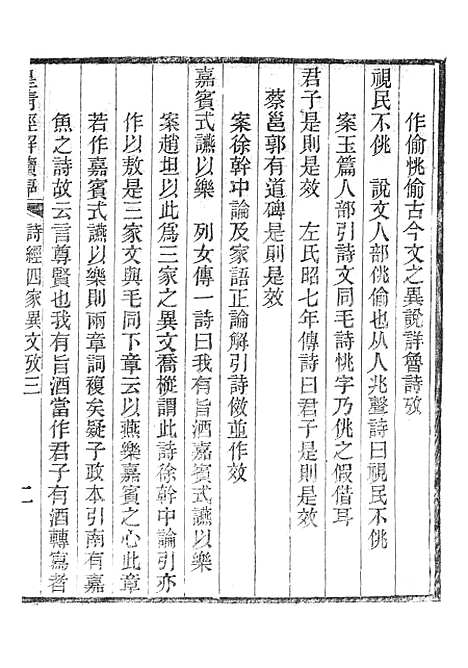 作偷恌偷古今文之異說詳魯詩攷
視民不佻　說文人部佻偷也从人兆聲詩曰視民不佻
案玉篇人部引詩文同毛詩恌字乃佻之假借耳
君子是則是效　左氏昭七年傳詩曰君子是則是效
蔡邕郭有道碑是則是效
案徐幹中論及家語正論解引詩傚並作效
嘉賓式讌以樂　列女傳一詩曰我有旨酒嘉賓式讌以樂
案趙坦以此爲三家之異文喬樅謂此詩徐幹中論引亦
作以敖是三家文與毛同下章云以燕樂嘉賓之心此章
若作嘉賓式讌以樂則兩章詞複矣疑子政本引南有嘉
魚之詩故云言尊賢也我有旨酒當作君子有酒轉寫者
皇清經解續編
詩經四家異文攷三
二